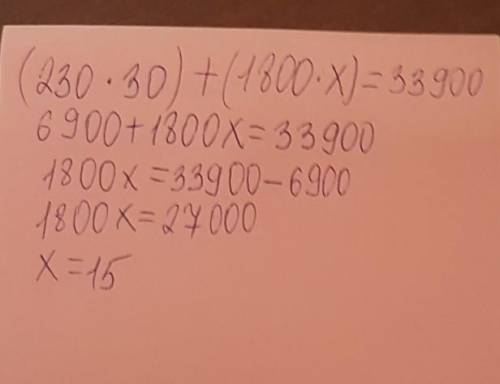 (230·30)+(1800·x)=33900
6900+1800x=33900
1800x=33900-6900
1800x=27000
x=15